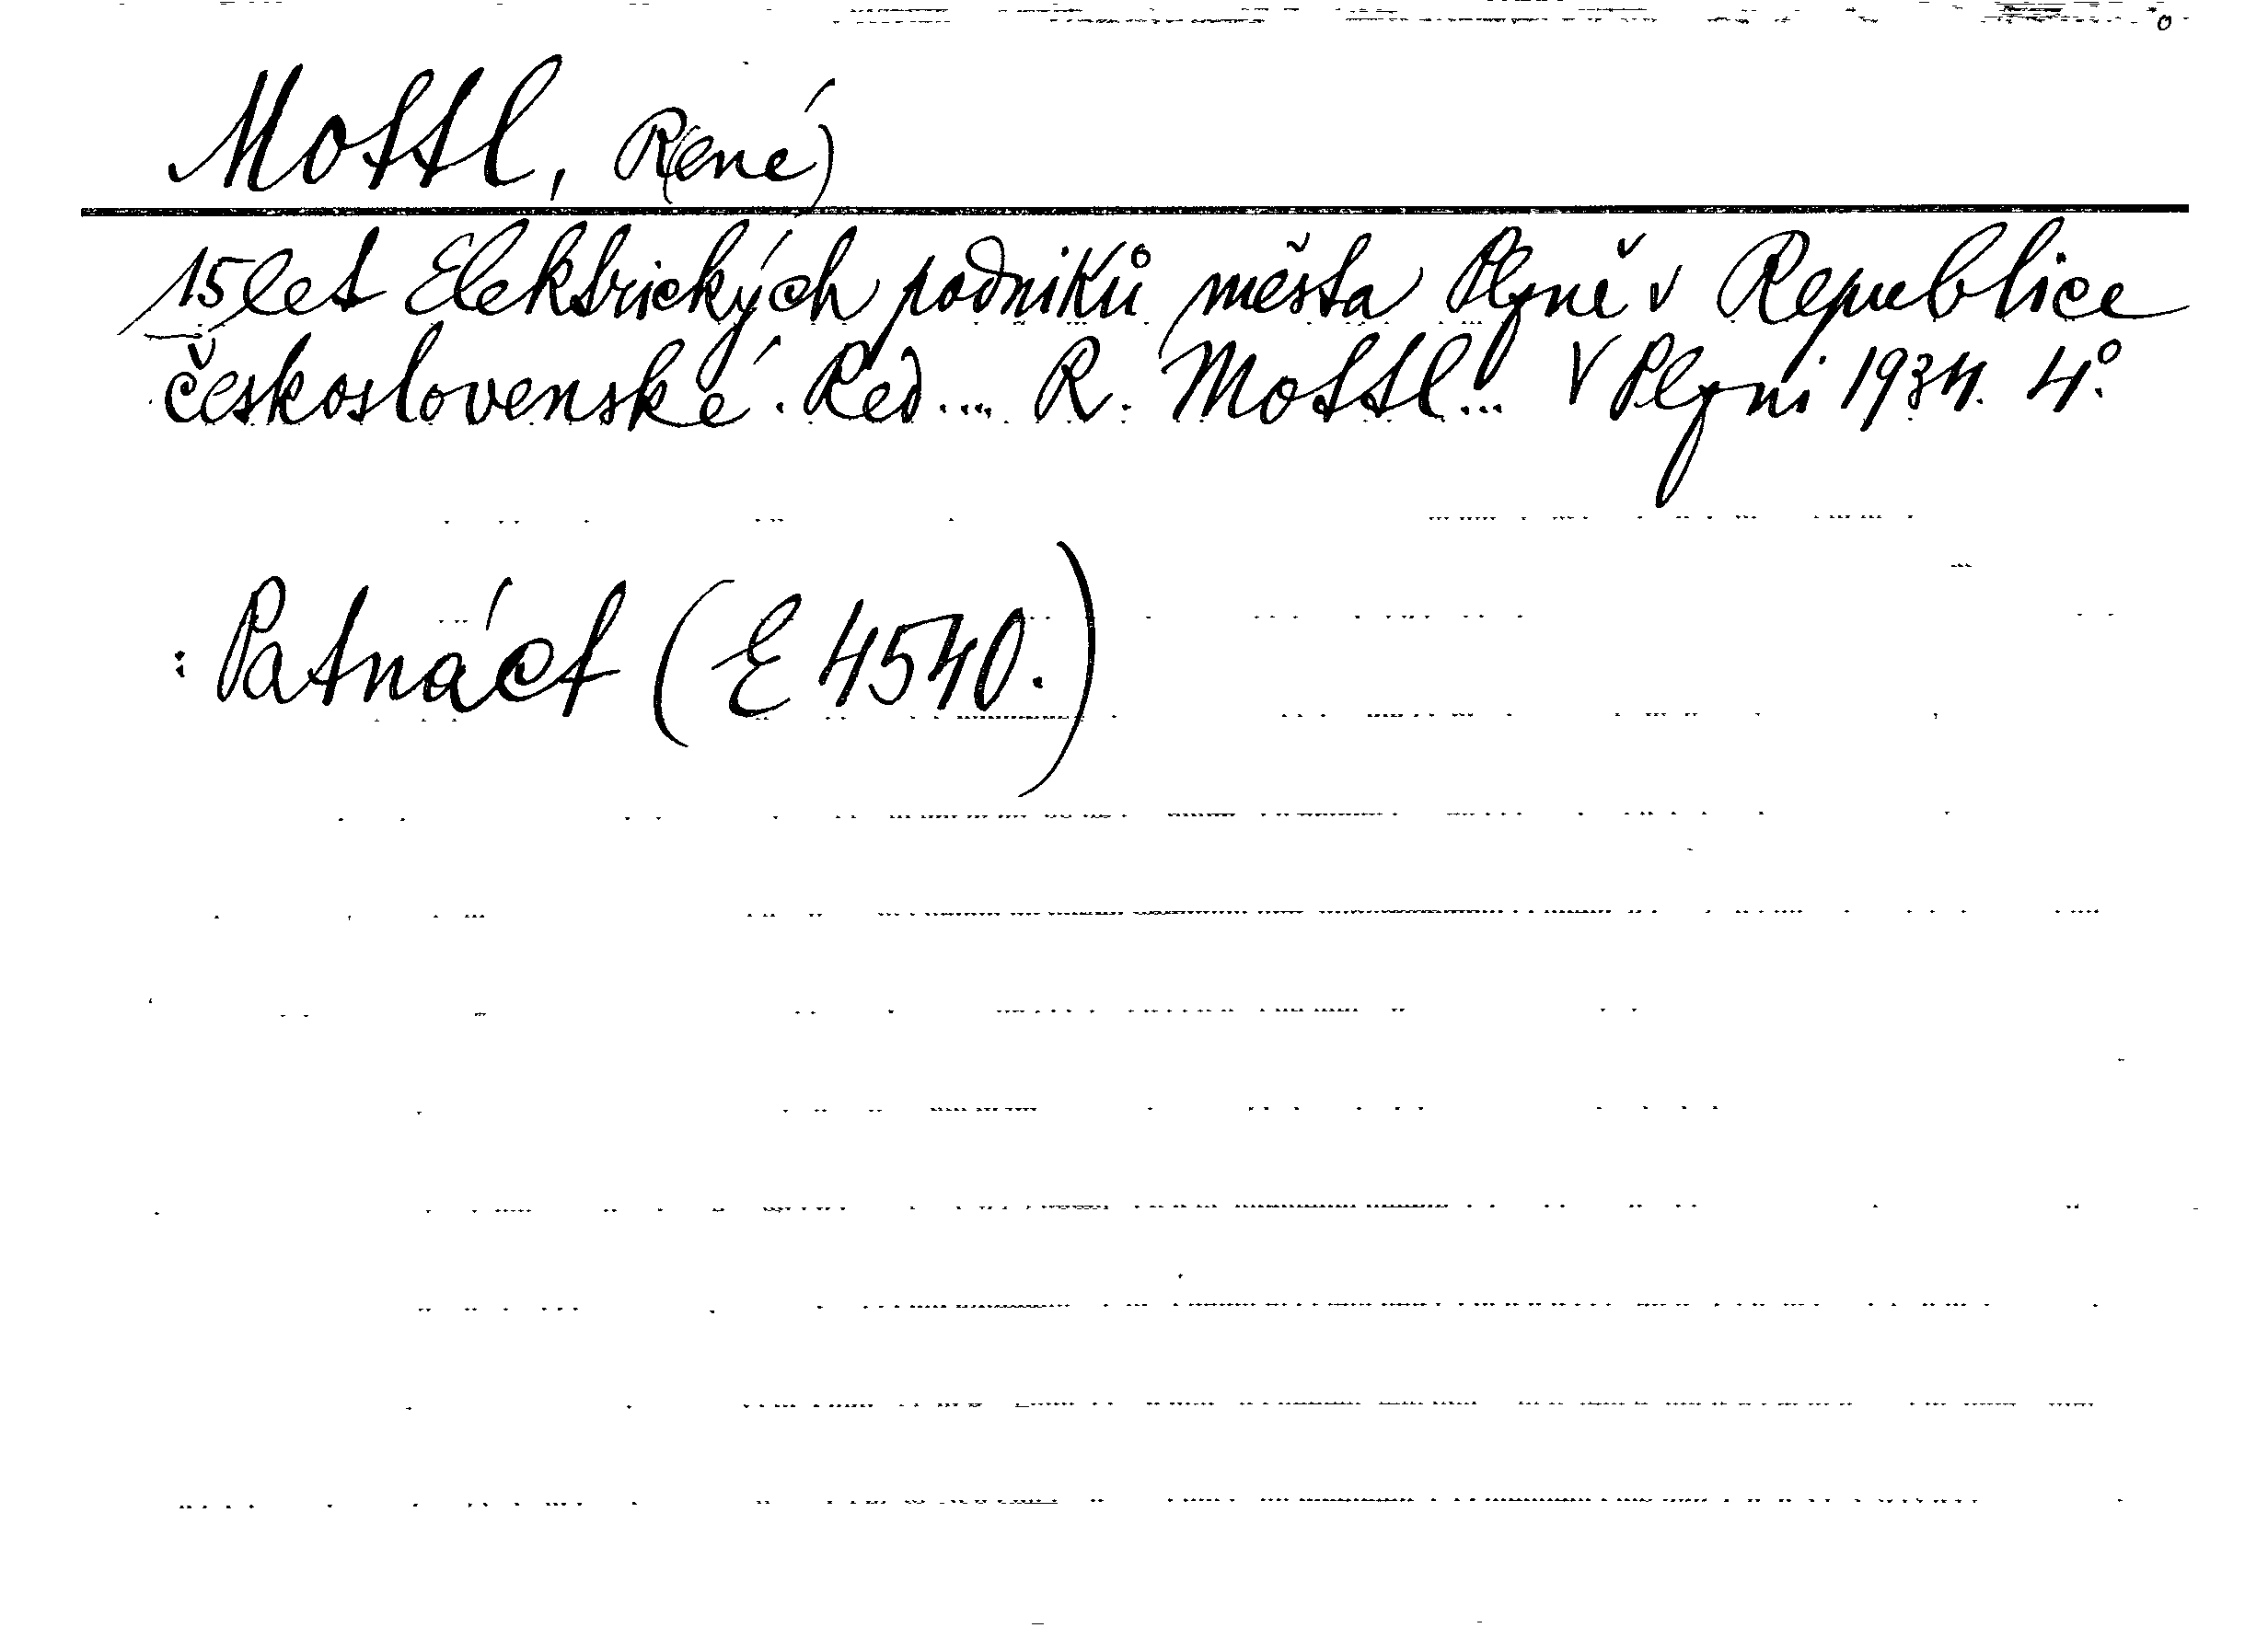 Mottl, R(ené)
15 let Elektrických podniků města Plzně v Republice
československé. Red.... R. Mottl... V Plzni 1934. 4°.
: Patnáct (E 4540.)